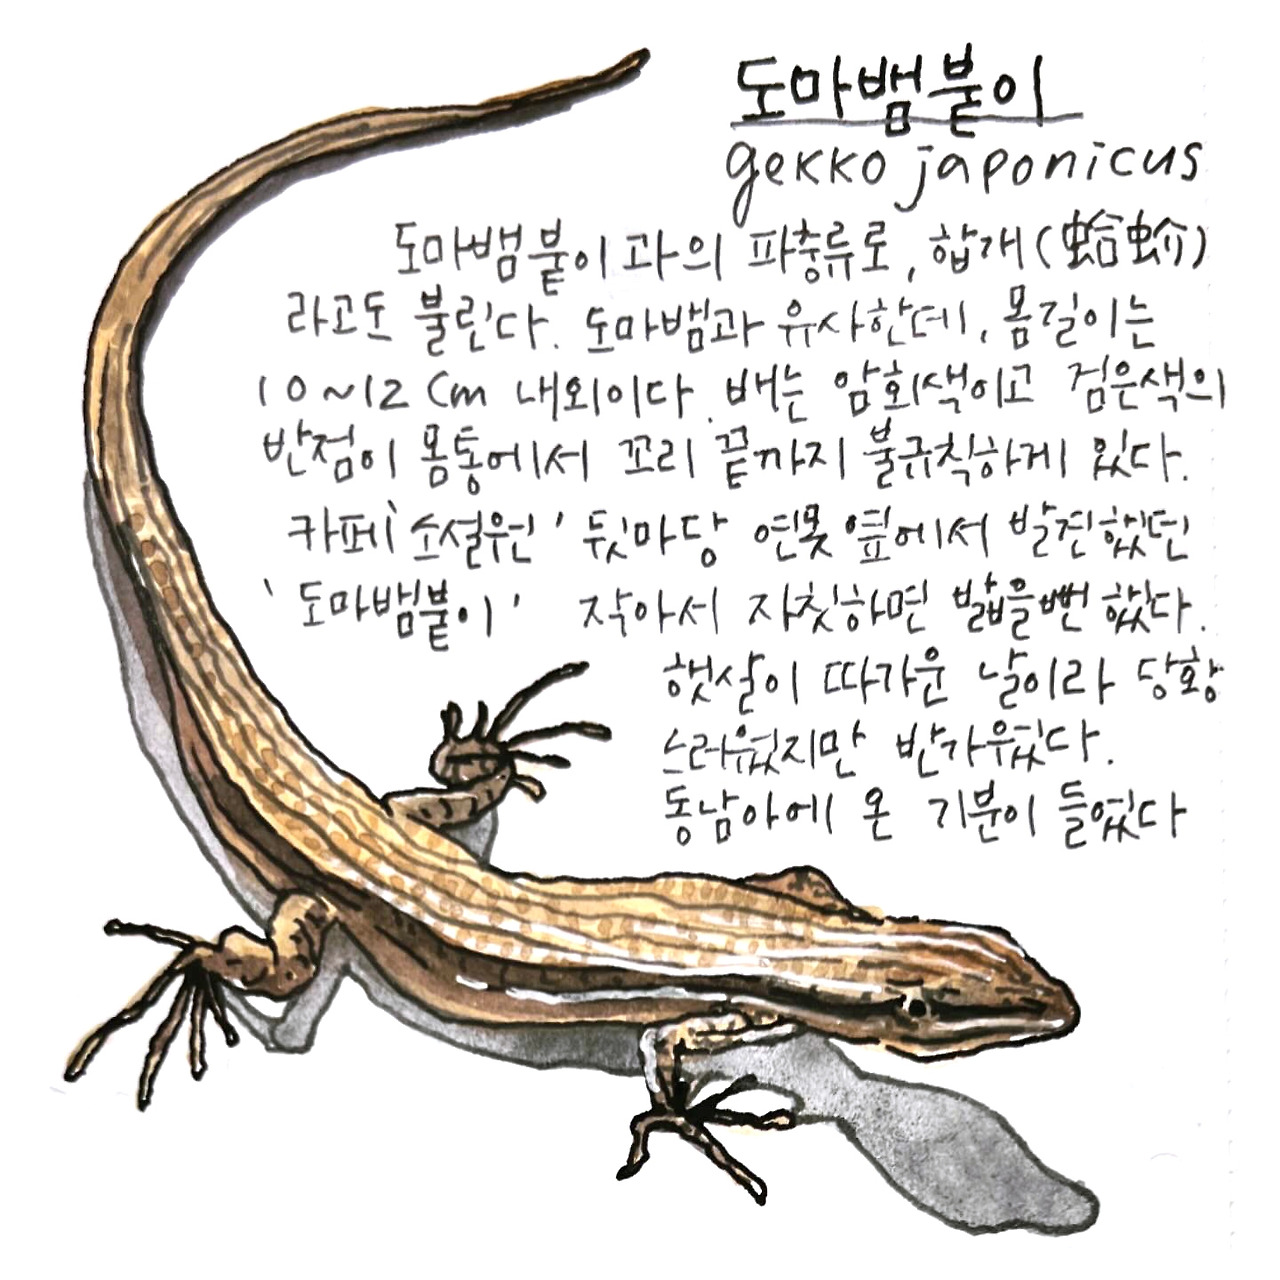 도마뱀붙이
gekko japonicus
도마뱀붙이과의 파충류로, 합개(蛤蚧)
라고도 불린다. 도마뱀과 유사한데, 몸길이는
10~12cm 내외이다. 배는 암회색이고 검은색의
반점이 몸통에서 꼬리 끝까지 불규칙하게 있다.
카페'소설원' 뒷마당 연못 옆에서 발견했던
'도마뱀붙이' 작아서 자칫하면 밟을뻔 했다.
햇살이 따가운 날이라 당황
스러웠지만 반가웠다.
동남아에 온 기분이 들었다